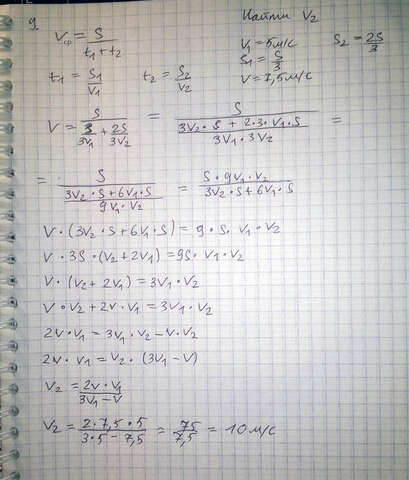 9. Найти V₂
Vср = S / (t₁ + t₂) V₁ = 5м/с S₂ = 2S/3
S₁ = S/3
t₁ = S₁/V₁ t₂ = S₂/V₂ V = 7,5м/с
V = S / (S/3V₁ + 2S/3V₂) = S / ((3V₂·S + 2·3·V₁·S) / (3V₁·3V₂)) =
= S / ((3V₂·S + 6V₁·S) / (9V₁·V₂)) = (S·9V₁·V₂) / (3V₂·S + 6V₁·S)
V·(3V₂·S + 6V₁·S) = 9·S·V₁·V₂
V·3S·(V₂ + 2V₁) = 9S·V₁·V₂
V·(V₂ + 2V₁) = 3V₁·V₂
V·V₂ + 2V·V₁ = 3V₁·V₂
2V·V₁ = 3V₁·V₂ − V·V₂
2V·V₁ = V₂·(3V₁ − V)
V₂ = 2V·V₁ / (3V₁ − V)
V₂ = (2·7,5·5) / (3·5 − 7,5) = 75/7,5 = 10м/с